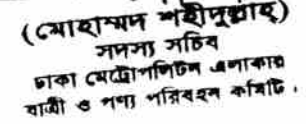 (মোহাম্মদ শহীদুল্লাহ)
সদস্য সচিব
ঢাকা মেট্রোপলিটন এলাকায়
যাত্রী ও পণ্য পরিবহন কমিটি।